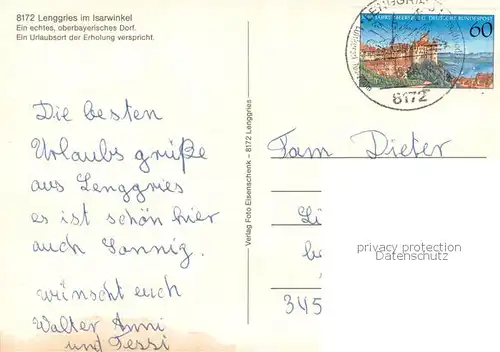 8172 Lenggries im Isarwinkel
Ein echtes, oberbayerisches Dorf.
Ein Urlaubsort der Erholung verspricht.
Die besten
Urlaubs grüße
aus Lenggries
es ist schön hier
auch Sonnig.
wünscht euch
Walter Anni
und Tessi
Verlag Foto Eisenschenk – 8172 Lenggries
DEUTSCHE BUNDESPOST
60
LENGGRIES
8172
Fam Dieter
345
privacy protection
Datenschutz